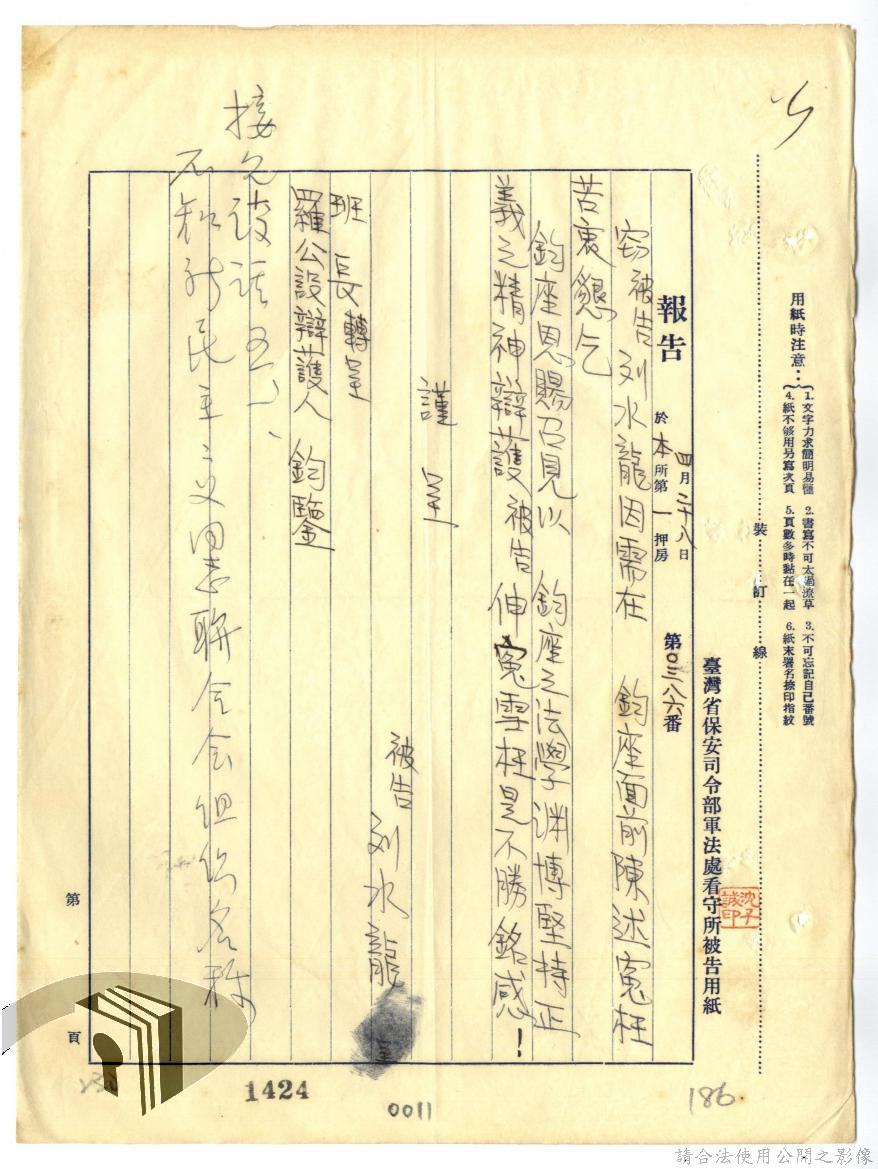 用紙時注意：
1.文字力求簡明易懂 2.書寫不可太過潦草 3.不可忘記自己番號
4.紙不够用另寫次頁 5.頁數多時黏在一起 6.紙末署名捺印指紋
裝訂線
臺灣省保安司令部軍法處看守所被告用紙
沈子誠印
報告 於本所第一押房 四月二十八日 第0三八六番
窃被告刘水龍因需在 鈞座面前陳述寃枉
苦衷懇乞
鈞座恩賜召見以 鈞座之法學渊博堅持正
義之精神辯護被告伸寃雪枉是不勝銘感！
謹呈
被告 刘水龍 呈
班長轉呈
羅公設辯護人 鈞鑒
接見談話
不知新民主主义同志联合会组织名称
第 頁
1424
0011
186
請合法使用公開之影像